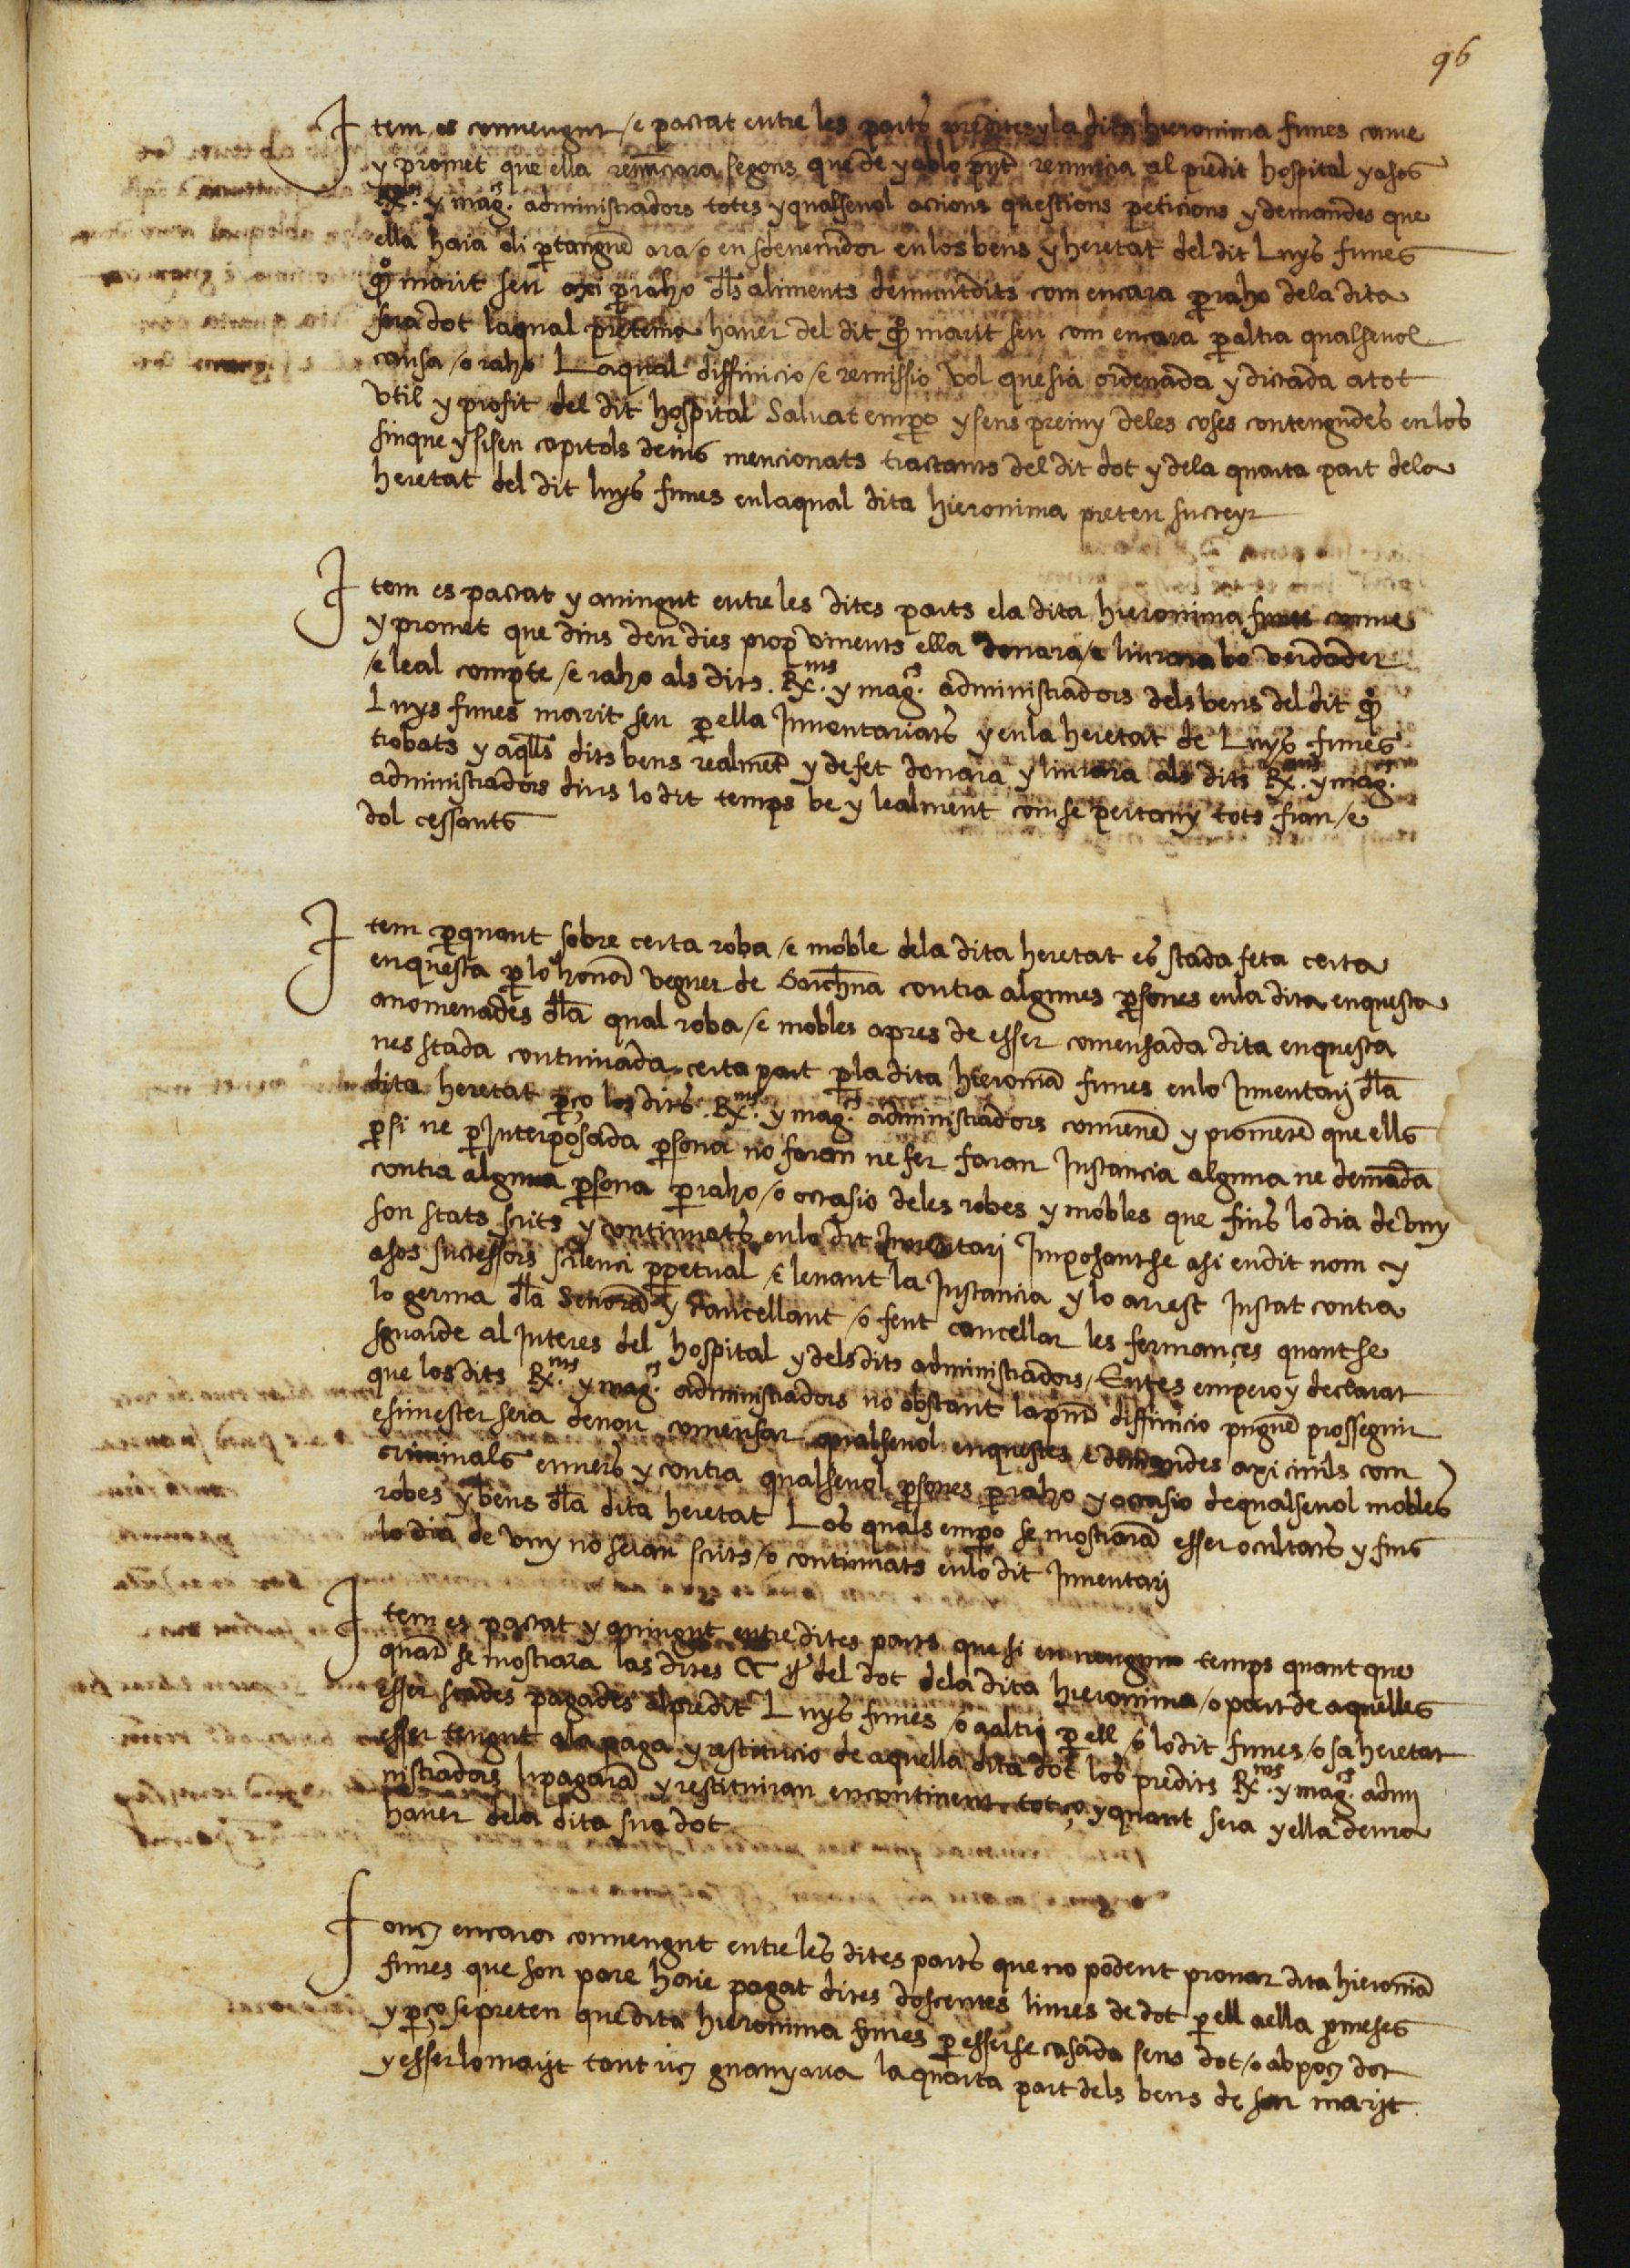 96
Item es convengut / e pactat entre les parts predites y la dita hieronima funes conve
y promet que ella renunciara segons que de y ab lo pnt renuncia al predit hospital y a sos
Rx. y mag.cs administradors totes y qualsevol actions questions peticions y demandes que
ella haia o li ptanguen ara / o en sdevenidor en los bens y heretat del dit Luys funes
qo marit seu axi p raho dls aliments demuntdits com encara p raho de la dita
sua dot la qual pretenia haver del dit qo marit seu com encara p altra qualsevol
causa / o raho Laqual diffinicio / e remissio vol que sia ordenada y dictada a tot
util y profit del dit hospital Salvat empo y sens preiuy de les coses contengudes en los
sinque y sisen capitols deius mencionats tractants del dit dot y de la quarta part dela
heretat del dit luys funes en laqual dita hieronima preten succeyr
Item es pactat y avingut entre les dites parts e la dita hieronima funes conve
y promet que dins deu dies prop vinents ella donara / e liurara bo verdader
/ e leal compte / e raho als dits . Rx.ms y mag.cs administradors dels bens del dit qo
Luys funes marit seu p ella Inventariats y en la heretat de Luys funes
trobats y aqlls dits bens realmet y de fet donara y liurara als dits Rx.ms y mag.cs
administradors dins lo dit temps be y lealment com se pertany tots frau / e
dol cessants
Item pquant sobre certa roba / e moble dela dita heretat es stada feta certa
enquesta p lo honor veguer de Barchna contra algunes psones en la dita enquesta
anomenades dla qual roba / e mobles apres de esser comensada dita enquesta
nes stada continuada certa part p la dita hieronima funes en lo Inventari dla
dita heretat pço los dits . Rx.ms y mag.cs administradors convene y promete que ells
p si ne p Interposada psona no faran ne fer faran Instancia alguna ne demada
contra alguna psona p raho / o occasio deles robes y mobles que fins lo dia de vuy
son stats scrits y continuats en lo dit Inventari Imposantse a si en dit nom y
a sos successors scilenci ppetual / e levant la Instancia y lo arrest Instat contra
lo germa dla Senora y Cancellant / o fent cancellar les fermançes quant se
sguarde al Interes del hospital y dels dits administradors / Entes empero y declarat
que los dits Rx.ms y mag.cs administradors no obstant la pnt diffinicio pugue prosseguir
e si mester sera de nou comensar qualsevol enquestes / e demandes axi civils com
criminals envers y contra qualsevol psones p raho y occasio de qualsevol mobles
robes y bens dla dita heretat Los quals empo se mostrara esser ocultats y fins
lo dia de vuy no seran scrits / o continuats en lo dit Inventari
Item es pactat y avingut entre dites parts que si en nengun temps quant que
quat se mostrara las dites CC ll del dot dela dita hieronima / o part de aquelles
esser stades pagades al predit Luys funes / o a altri p ell / o lo dit funes / o sa heretat
esser tengut a la paga y restitucio de aquella dita dot los predits Rx.ms y mag.cs admi
nistradors li pagara y restituiran encontinent tot ço y quant sera y ella deura
haver dela dita sua dot
Fonch encara convengut entre les dites parts que no podent provar dita hieronima
funes que son pare haie pagat dites doscentes liures de dot p ell a ella pmeses
y pço se preten que dita hieronima funes p esserse casada sens dot / o ab poch dot
y esser lo marit tant rich guanyaria la quarta part dels bens de son marit